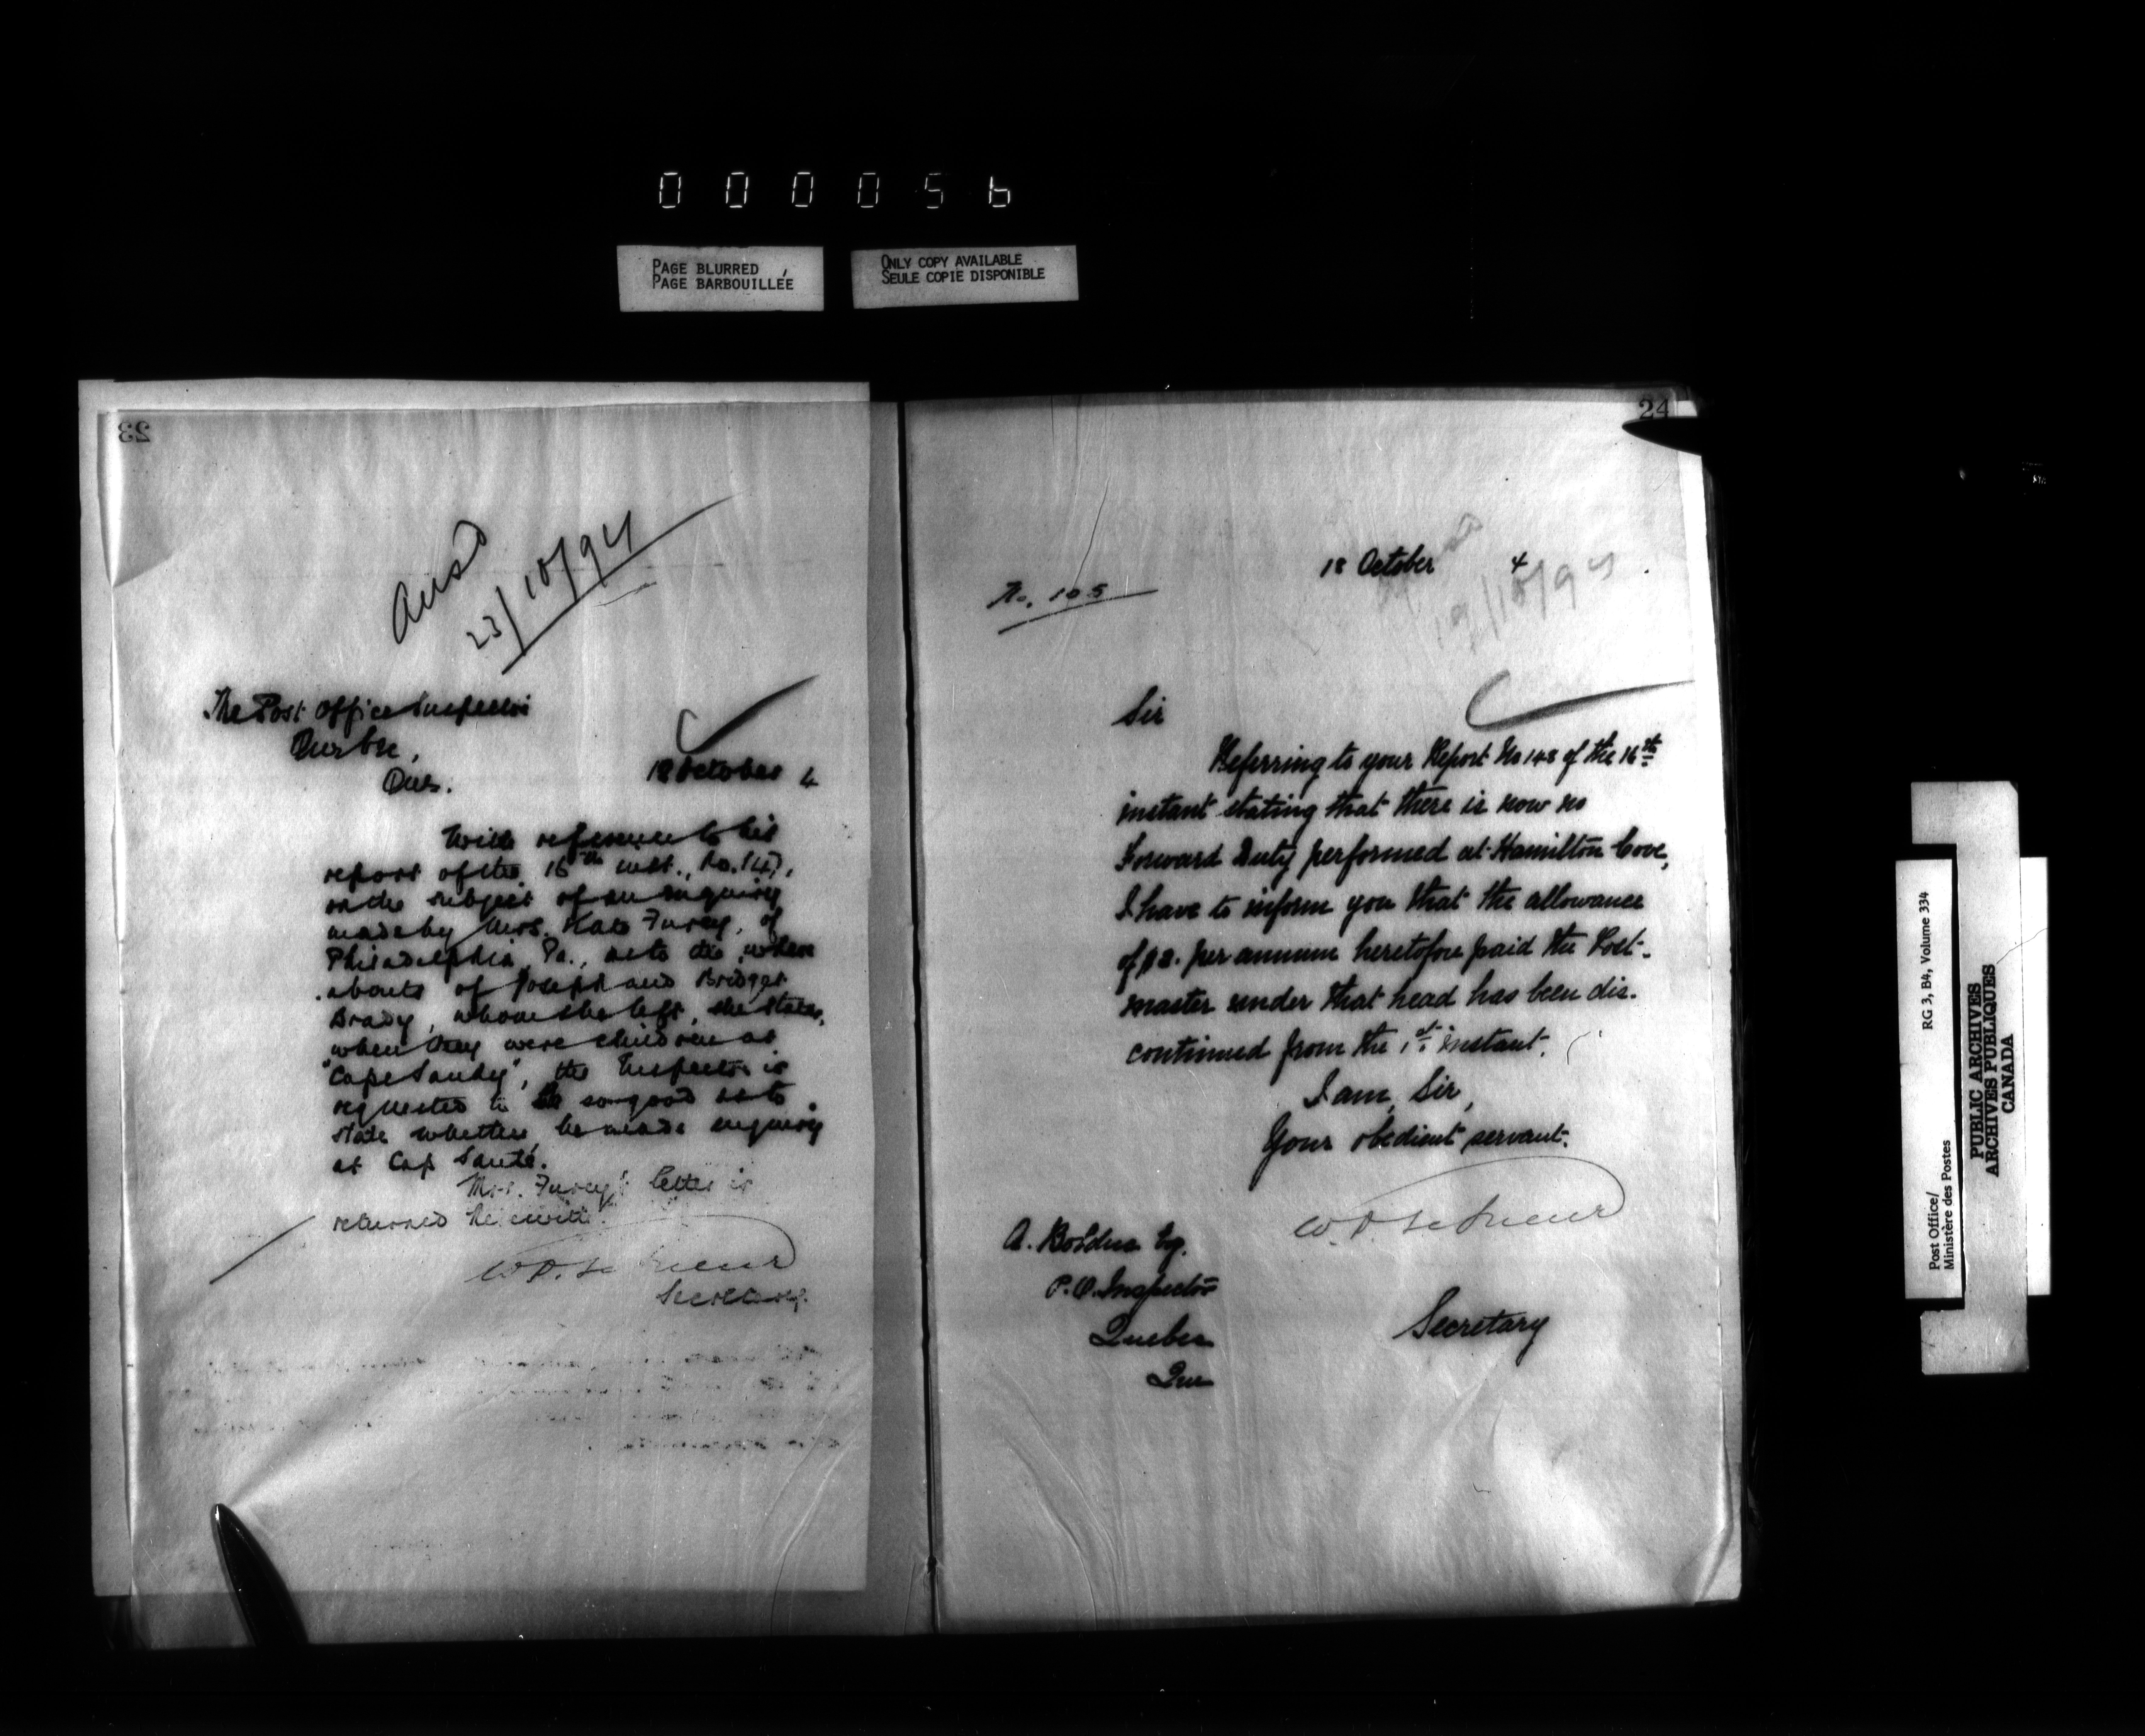 000056
PAGE BLURRED
PAGE BARBOUILLÉE
ONLY COPY AVAILABLE
SEULE COPIE DISPONIBLE
23
Ansd
23/10/94
The Post Office Inspector
Quebec,
Que.
18 October 4
With reference to his
report of the 16th inst., No. 147,
on the subject of an enquiry
made by Mrs. Kate Furey, of
Philadelphia, Pa., as to the where
abouts of Joseph and Bridget
Brady, whom she left, she states,
when they were children at
"Cape Sandy", the Inspector is
requested to be so good as to
state whether he made enquiry
at Cap Santé.
Mrs. Furey's letter is
returned herewith.
W. D. LeSueur
Secretary.
24
18 October 4
19/10/94
No. 105
Sir
Referring to your Report No 148 of the 16th
instant stating that there is now no
Forward Duty performed at Hamilton Cove,
I have to inform you that the allowance
of $8. per annum heretofore paid the Post-
master under that head has been dis-
continued from the 1st instant.
I am, Sir,
Your obedient servant.
W. D. LeSueur
A. Bolduc Esq.
P.O. Inspector
Quebec
Que
Secretary
Post Office/
Ministère des Postes
RG 3, B4, Volume 334
PUBLIC ARCHIVES
ARCHIVES PUBLIQUES
CANADA